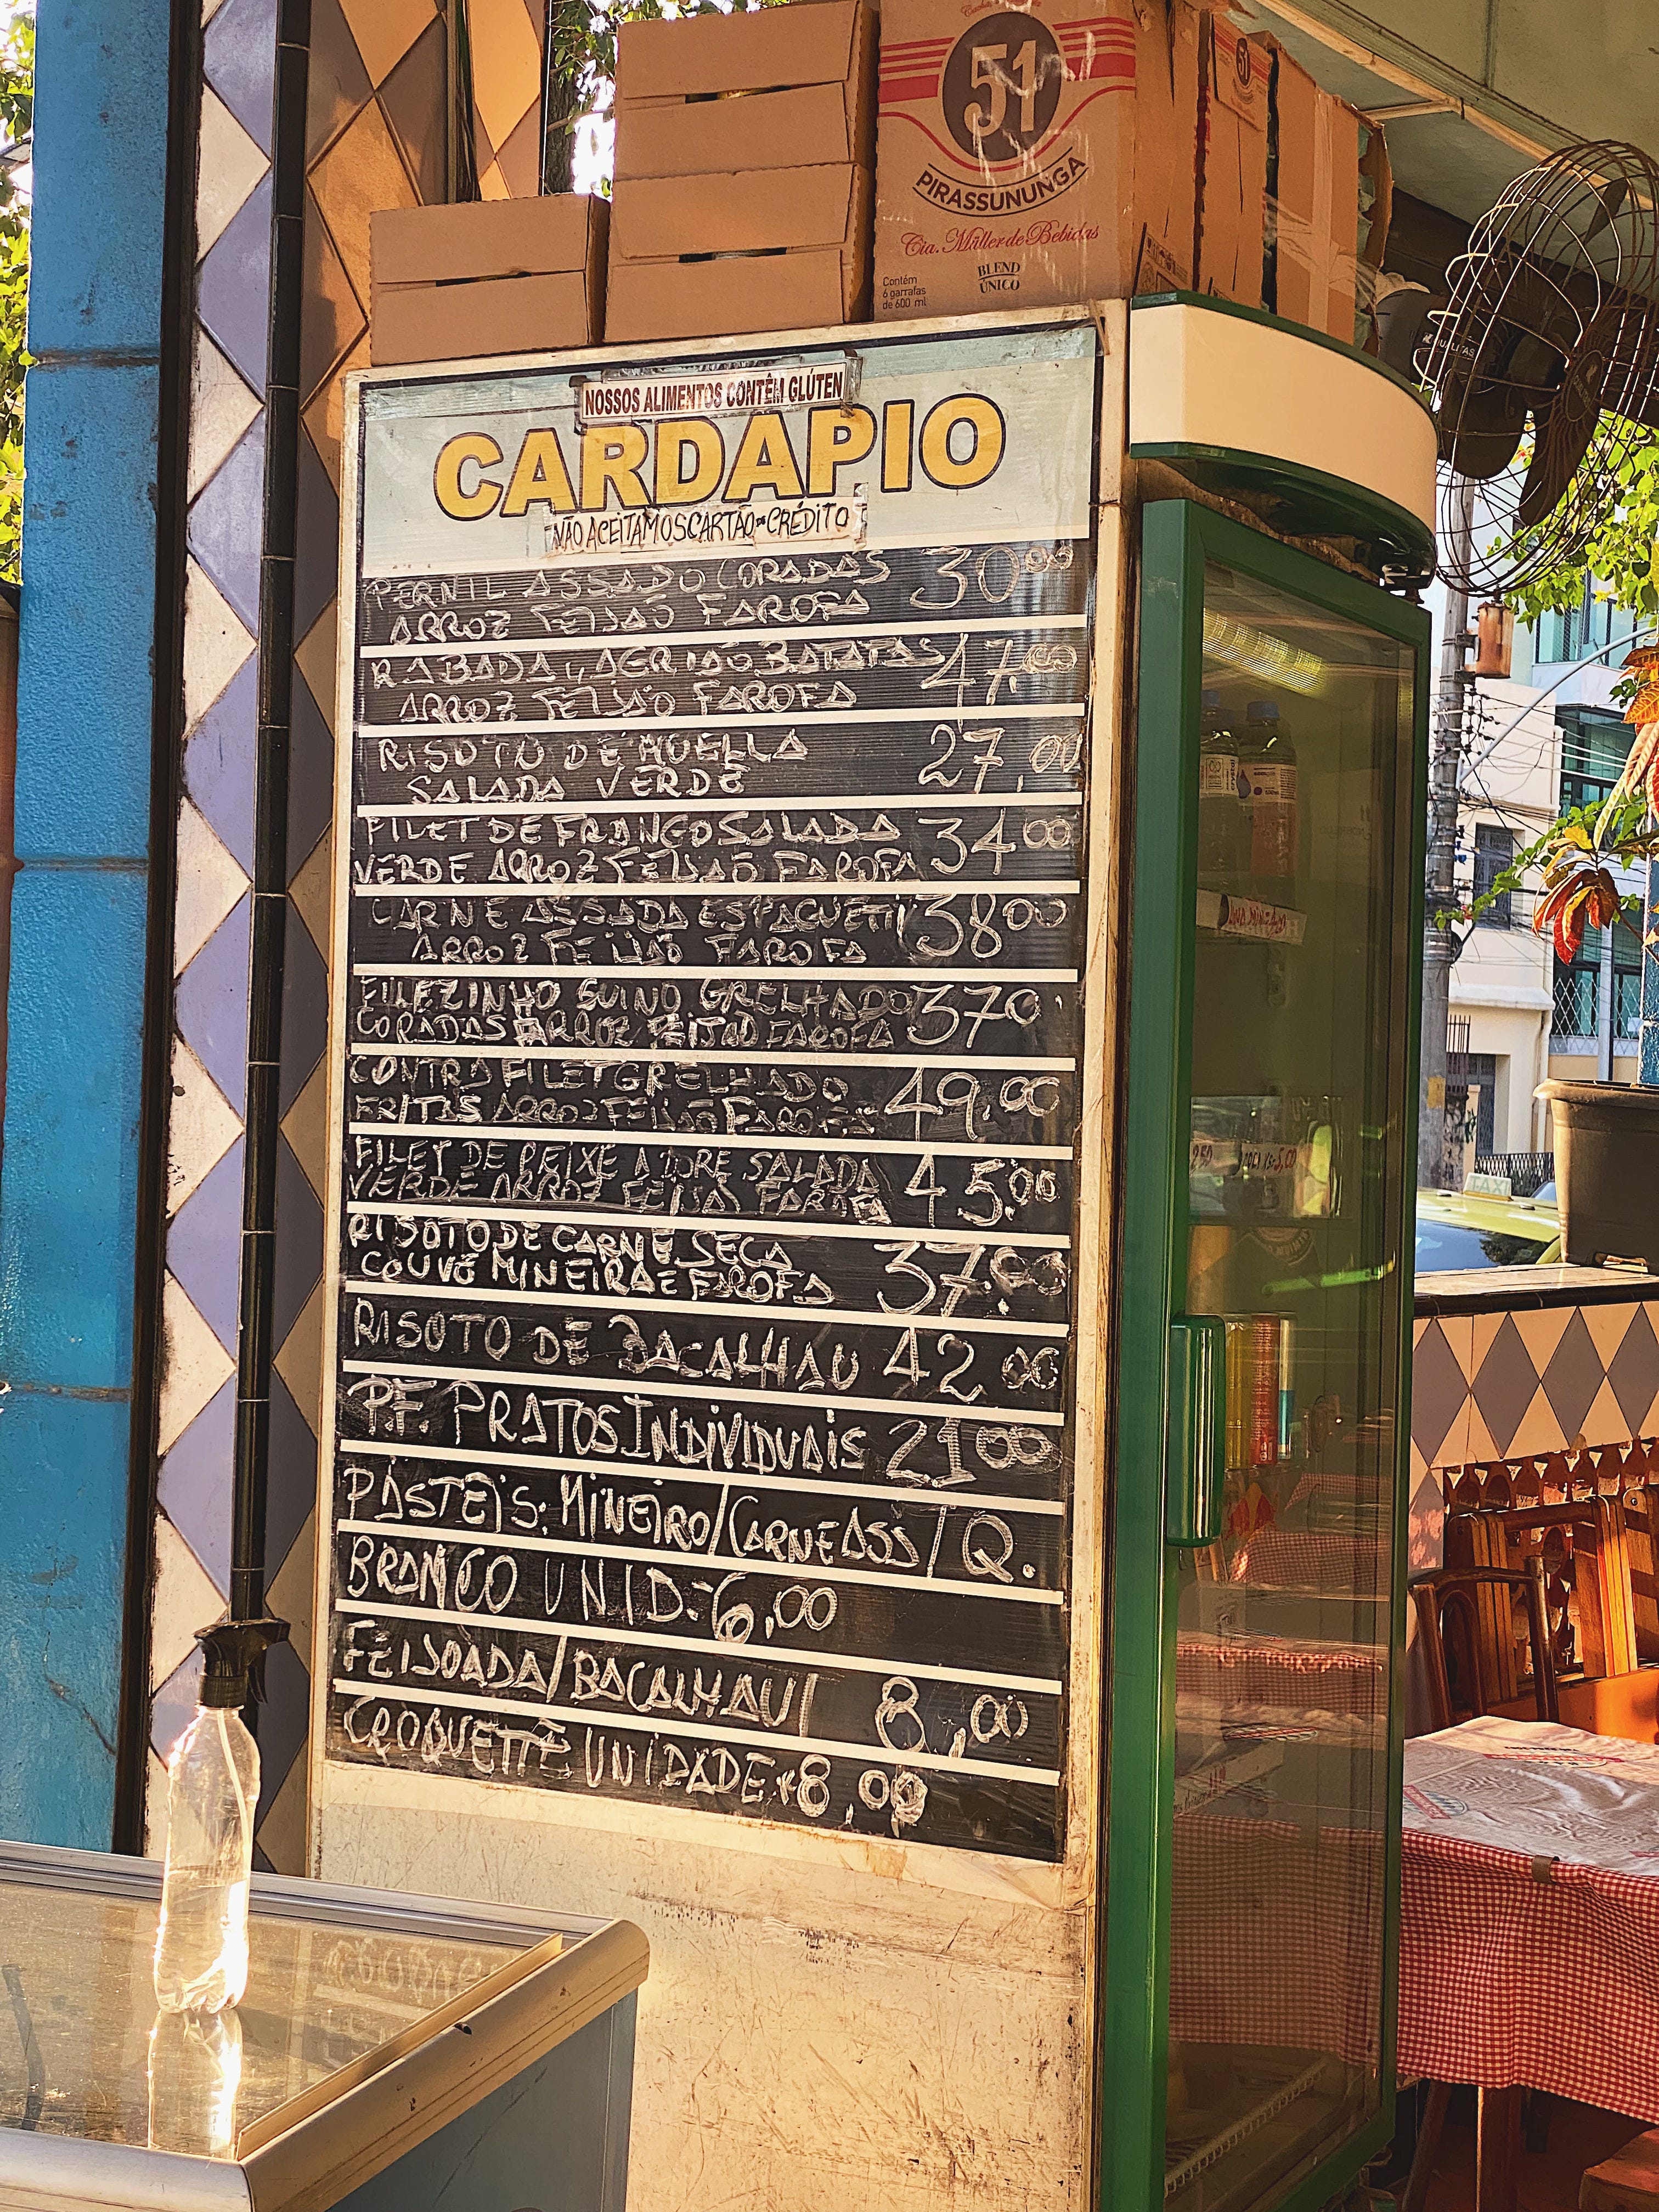 51
PIRASSUNUNGA
Cia. Müller de Bebidas
BLEND
ÚNICO
Contém
6 garrafas
de 600 ml
51
NOSSOS ALIMENTOS CONTÊM GLÚTEN
CARDAPIO
NÃO ACEITAMOS CARTÃO DE CRÉDITO
PERNIL ASSADO CORADAS 30,00
ARROZ FEIJÃO FAROFA
RABADA, AGRIÃO BATATAS 47,00
ARROZ FEIJÃO FAROFA
RISOTO DE MUELLA 27,00
SALADA VERDE
FILET DE FRANGO SALADA 34,00
VERDE ARROZ FEIJÃO FAROFA
CARNE ASSADA ESPAGUETI 38,00
ARROZ FEIJÃO FAROFA
FILEZINHO SUINO GRELHADO 370
CORADAS ARROZ FEIJÃO FAROFA
CONTRA FILET GRELHADO 49,00
FRITAS ARROZ FEIJÃO FAROFA
FILET DE PEIXE A DORE SALADA 45,00
VERDE ARROZ FEIJÃO FAROFA
RISOTO DE CARNE SECA 37,00
COUVE MINEIRA E FAROFA
RISOTO DE BACALHAU 42,00
P.F. PRATOS INDIVIDUAIS 21,00
PASTEIS: MINEIRO/CARNE ASS/Q.
BRANCO UNID: 6,00
FEIJOADA/BACALHAU/ 8,00
CROQUETTE UNIDADE 8,00
TAXI